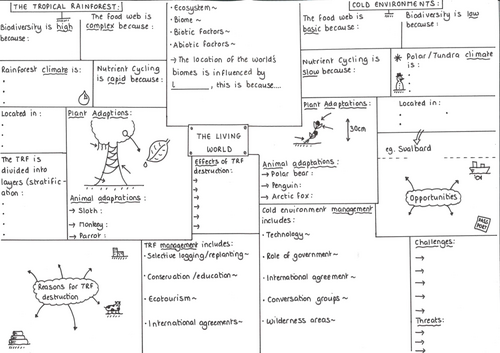 THE TROPICAL RAINFOREST:
Biodiversity is high
because:
The food web is
complex because:
Rainforest climate is:
Nutrient Cycling
is rapid because:
Located in:
Plant Adaptions:
The TRF is
divided into
layers (stratific-
ation:
Animal adaptations:
→ Sloth:
→ Monkey:
→ Parrot:
Reasons for TRF
destruction
• Ecosystem~
• Biome~
• Biotic factors~
• Abiotic factors~
→ The location of the world's
biomes is influenced by
l________, this is because....
THE LIVING
WORLD
Effects of TRF
destruction:
TRF management includes:
• Selective logging/replanting~
• Conservation/education~
• Ecotourism~
• International agreements~
COLD ENVIRONMENTS:
The food web is
basic because:
Biodiversity is low
because:
Nutrient Cycling is
slow because:
* Polar/Tundra climate
is:
Plant Adaptations:
30cm
Located in:
Animal adaptations:
→ Polar bear:
→ Penguin:
→ Arctic Fox:
eg. Svalbard
Opportunities
PASS
PORT
Cold environment management
includes:
• Technology~
• Role of government~
• International agreement~
• Conversation groups~
• Wilderness areas~
Challenges:
Threats: